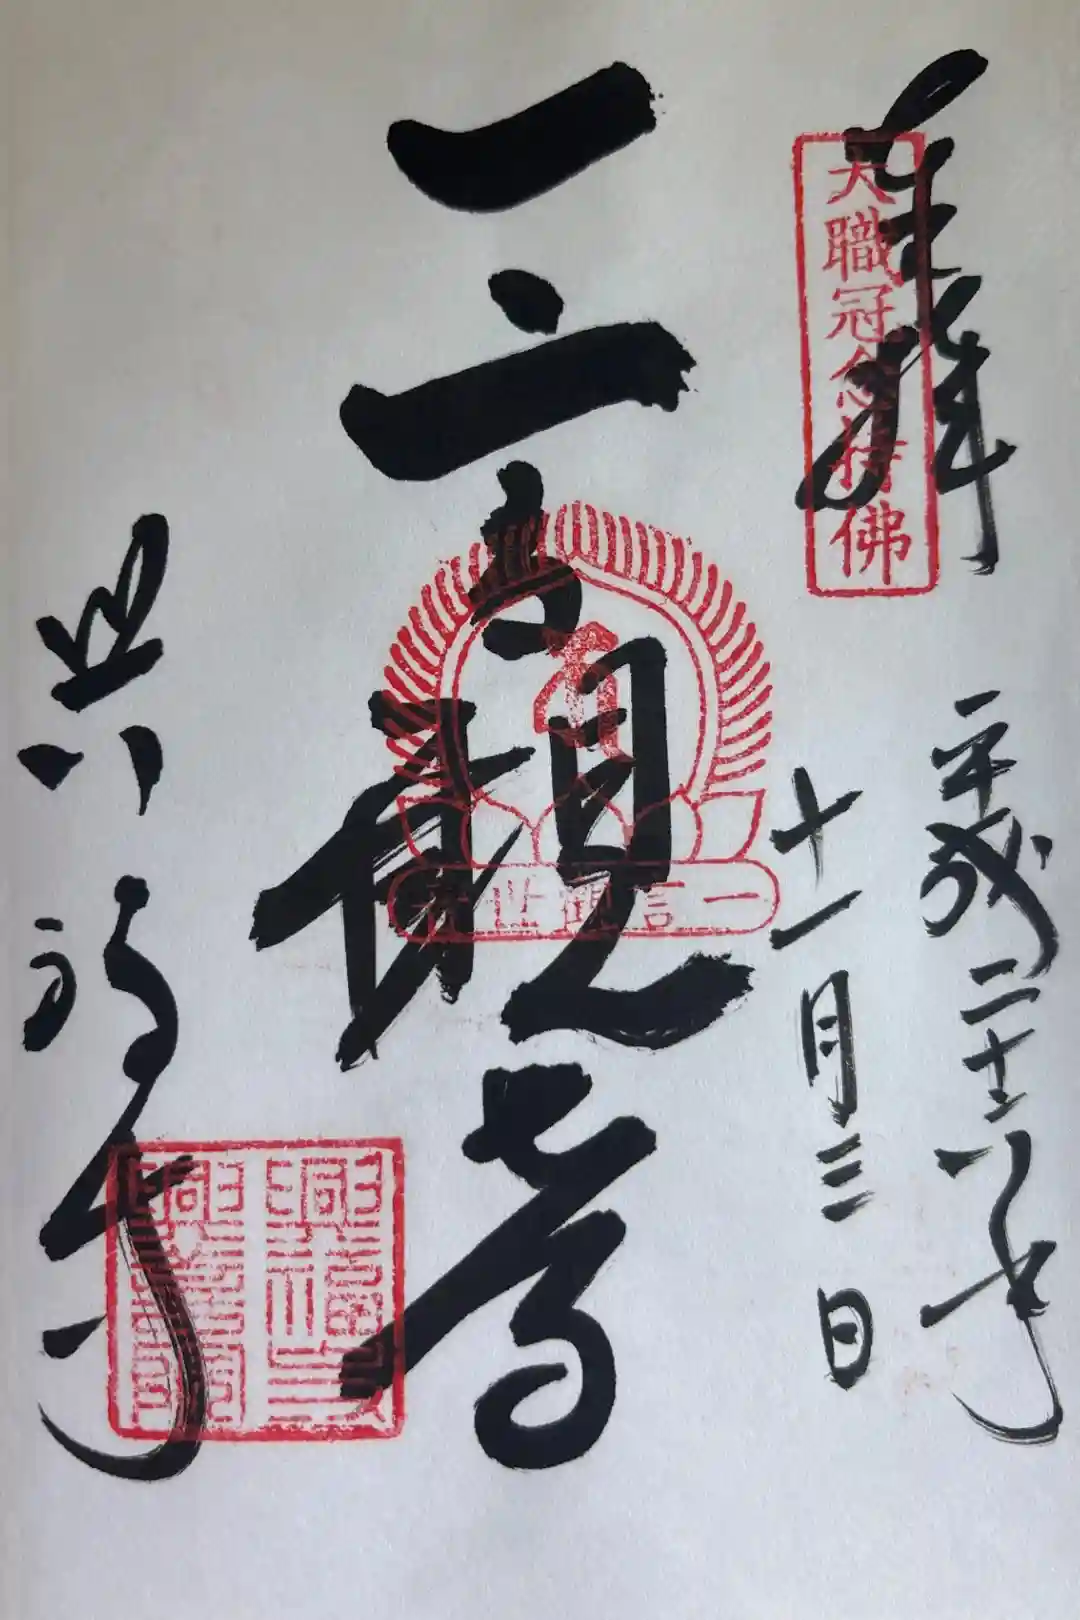 奉拝
大職冠念持佛
平成二十六年
十一月三日
一言観音
一言観世音
興福寺